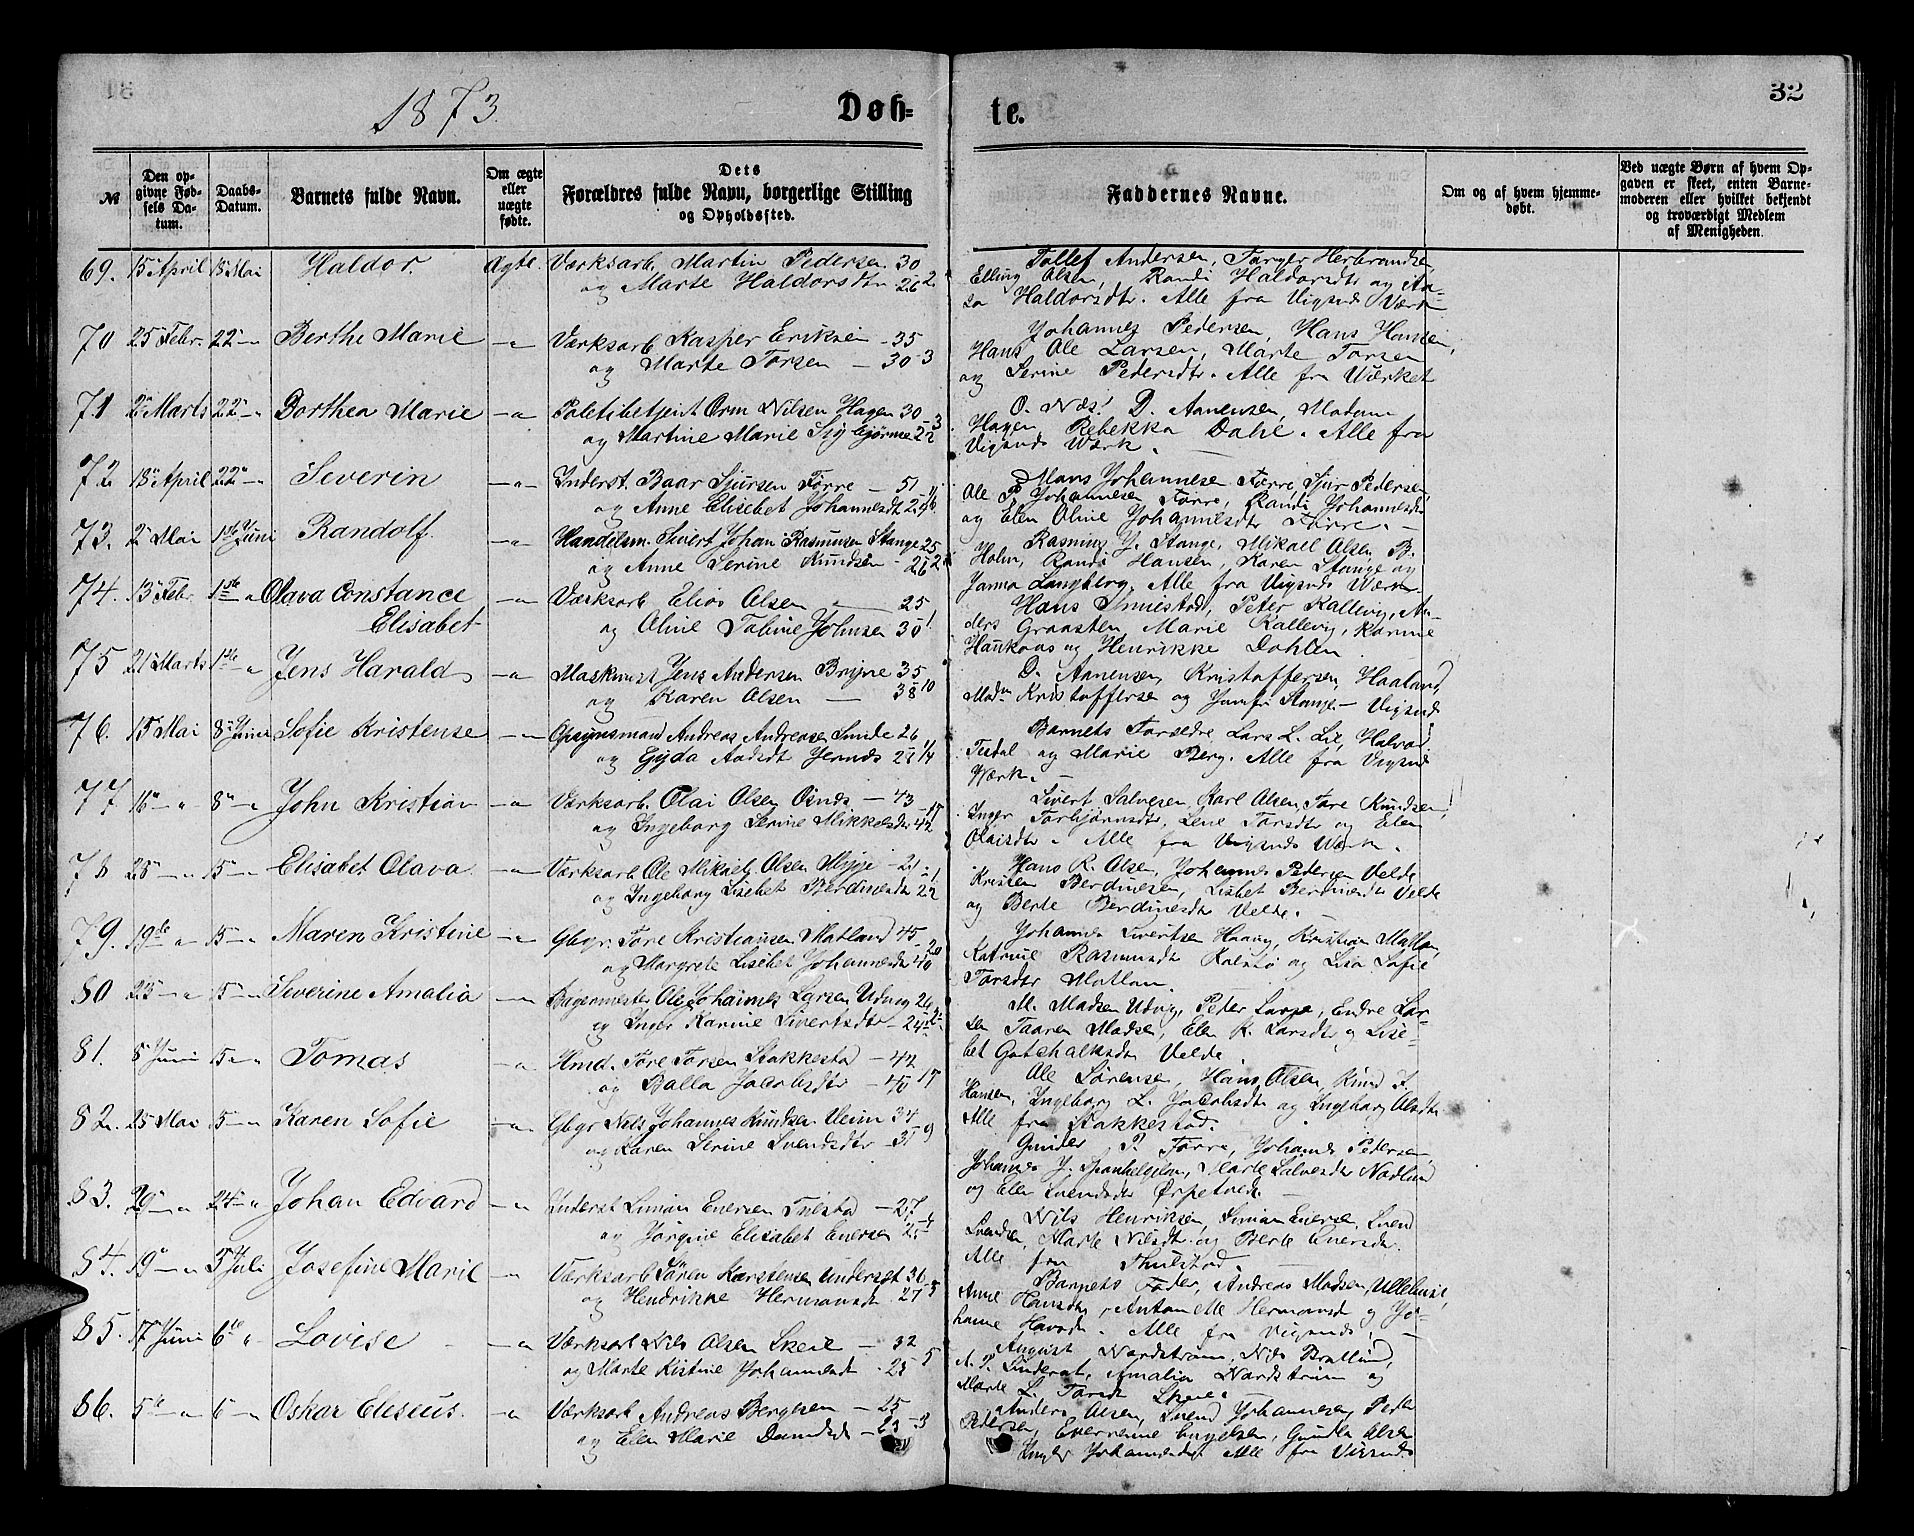 1873.
Døb-
te.
32
№
Den op-
givne Fød-
sels Da-
tum.
Daabs-
Datum.
Barnets fulde Navn.
Om ægte
eller
uægte
fødte.
Dets
Forældres fulde Navn, borgerlige Stilling
og Opholdssted.
Faddernes Navne.
Om og af hvem hjemme-
døbt.
Ved uægte Børn af hvem Op-
gaven er skeet, enten Barne-
moderen eller hvilket bekjendt
og troværdigt Medlem
af Menigheden.
69. 15 April 18 Mai Haldor. Ægte. Værksarb. Martin Pedersen 30
og Marte Haldorsdtr 26 2
Tollef Andersen, Torger Herbrandsen
Elling Olsen, Randi Haldorsdtr og Aa-
sa Haldorsdtr. Alle fra Vigsnes Værk
70 25 Febr. 22 Berthe Marie Værksarb. Kasper Eriksen 35
og Marte Torsen 30 3
Johannes Pedersen, Hans Hansen,
Hans Ole Larsen, Marte Torsen
og Serine Pedersdtr. Alle fra Værket
71 2 Marts 22 Dorthea Marie Politibetjent Orm Nilsen Hagen 30
og Martine Marie Sigbjørnse 22 3
O. Næs. D. Aanensen, Madam
Hagen, Rebekka Dahl. Alle fra
Vigsnes Værk.
72 18 April 22 Severin Inderst. Baar Sjursen Førre 51
og Anne Elisebet Johannesdt
Mons Johannesen Førre, Sjur Pedersen,
Ole P. Johannesen Førre, Randi Johannesdtr
og Elen Oline Johannesdtr Førre.
73. 2 Mai 1ste Juni Randolf Handelsm. Sivert Johan Rasmusen Stange 25
og Anne Serine Knudsen 26 2
Rasmus J. Stange, Mikael Olsen, B.
Holm, Randi Hansen, Karen Stange og
Langberg. Alle fra Vigsnes Værk
74. 13 Febr. 1ste Olava Constance Værksarb Elios Olsen 25
Elisabet og Oline Tobine Johnsen 30 1
Hans Tinnestad, Peter Kallevig, An-
ders Graasten Marie Kallevig, Karine
Haukaas og Henrikke Dahlen
75 21 Marts 1ste Jens Harald Maskinist Jens Andersen Brynne 35
og Karen Olsen 38 10
D. Aanensen, Kristoffersen, Haaland,
Madm Kristoffersen og Jomfr Stange. Vigsnes
76. 15 Mai 8 Juni Sofie Kristense Opsynsmand Andreas Andreasen Sunde 26
og Gyda Aadsdt Jernæs 28 1/4
Barnets Forældre Lars L. Lie, Halvor
Tesdal og Marie Berg. Alle fra Vigsnes
Værk.
77 16 8 John Kristian Værksarb. Olai Olsen Osnes 43
og Ingeborg Serine Mikkelsdtr 42
Sivert Salvesen, Karl Olsen, Tore Knudsen,
Inger Torbjørnsdtr, Lene Torsdtr og Elen
Olaisdtr. Alle fra Vigsnes Værk.
78 28 15 Elisabet Olava Værksarb Ole Mikael Olsen Myge 21
og Ingeborg Lisebet Berdinesdtr 22 1
Hans R. Olsen, Johannes Pedersen Velde
Kristen Berdinesen, Lisbet Berdinesdtr Velde
og Berte Berdinesdtr Velde.
79. 19de 15 Maren Kristine Gbgr. Tore Kristiansen Matland 45
og Margrete Lisebet Johannesdtr 40 20
Johannes Sivertsen Haavig, Kristian Matlan,
Katrine Rasmusdt Kalstø og Lisa Sofie
Torsdtr Matlan.
80 23 15 Severine Amalia Bøgermester Ole Johannes Larsen Udvig 26
og Inger Karine Sivertsdtr 24
M. Madsen Udvig, Peder Larse, Endre Lar-
sen Taaren Madsen, Elen K. Larsdtr, og Lise-
bet Gotskalksdtr Velde.
81. 8 Juni 15 Tomas Hmd. Tore Torsen Stakkestad 42
og Balla Jacobsdtr 40 17
Ole Sørensen, Hans Olsen, Knud J.
Hansen, Ingeborg L. Jacobsdtr og Ingeborg Olsdtr
Alle fra Stakkestad.
82. 25 Mai 15 Karen Sofie Gbgr Nils Johannes Knudsen Veim 34
og Karen Serine Svendsdtr 31 9
Gunder P. Førre, Johannes Pedersen,
Johannes J. Spanhelgeland, Marte Salvesdtr Nodland
og Elen Svendsdtr Ørpetvedt.
83. 29 24 Johan Edvard Inderst Simon Enersen Tuestad 27
og Jørgine Elisabet Enersen 25 4
Nils Henriksen, Simon Enersen, Svend
Svendsen, Marte Nilsdtr og Berte Enersdtr.
Alle fra Thuestad.
84. 19 5 Juli Josefine Marie Værksarb Sören Karstensen Underset 30
og Hendrikke Hermansdt. 27 5
Barnets Fader, Andreas Madsen,
Anne Hansdtr, Antonette Hermansdt og Jo-
hanne Alle fra Vigsnes.
85. 17 Juni 6te Lovise Værksarb Nils Olsen Skeie 32
og Marte Kistine Johannesdt. 25 5
August Nordstrøm, Nils
A. P. Amalia Nordstrøm og
Marte L. Torsdt Skeie.
86. 5te 6 Oskar Eliseus. Værksarb Andreas Bergesen 25
og Elen Marie 23 3
Anders Olsen, Svend Johannesen, Peder
Pedersen, Engelsen, Gunda Olsen
Inger Johannesdt. Alle fra Vigsnes